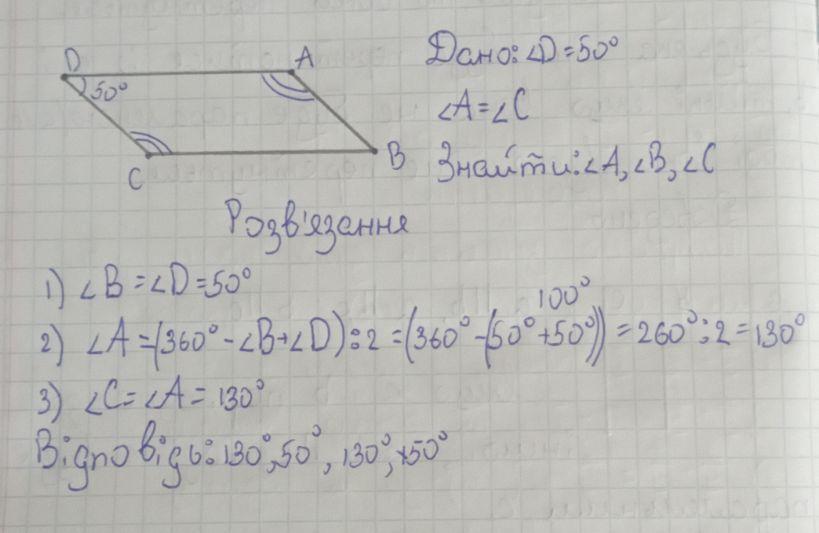 D A
50°
C B
Дано: ∠D=50°
∠A=∠C
Знайти: ∠A, ∠B, ∠C
Розв'язання
1) ∠B=∠D=50°
100°
2) ∠A=(360°-∠B+∠D):2=(360°-(50°+50°))=260°:2=130°
3) ∠C=∠A=130°
Відповідь: 130°, 50°, 130°, 50°